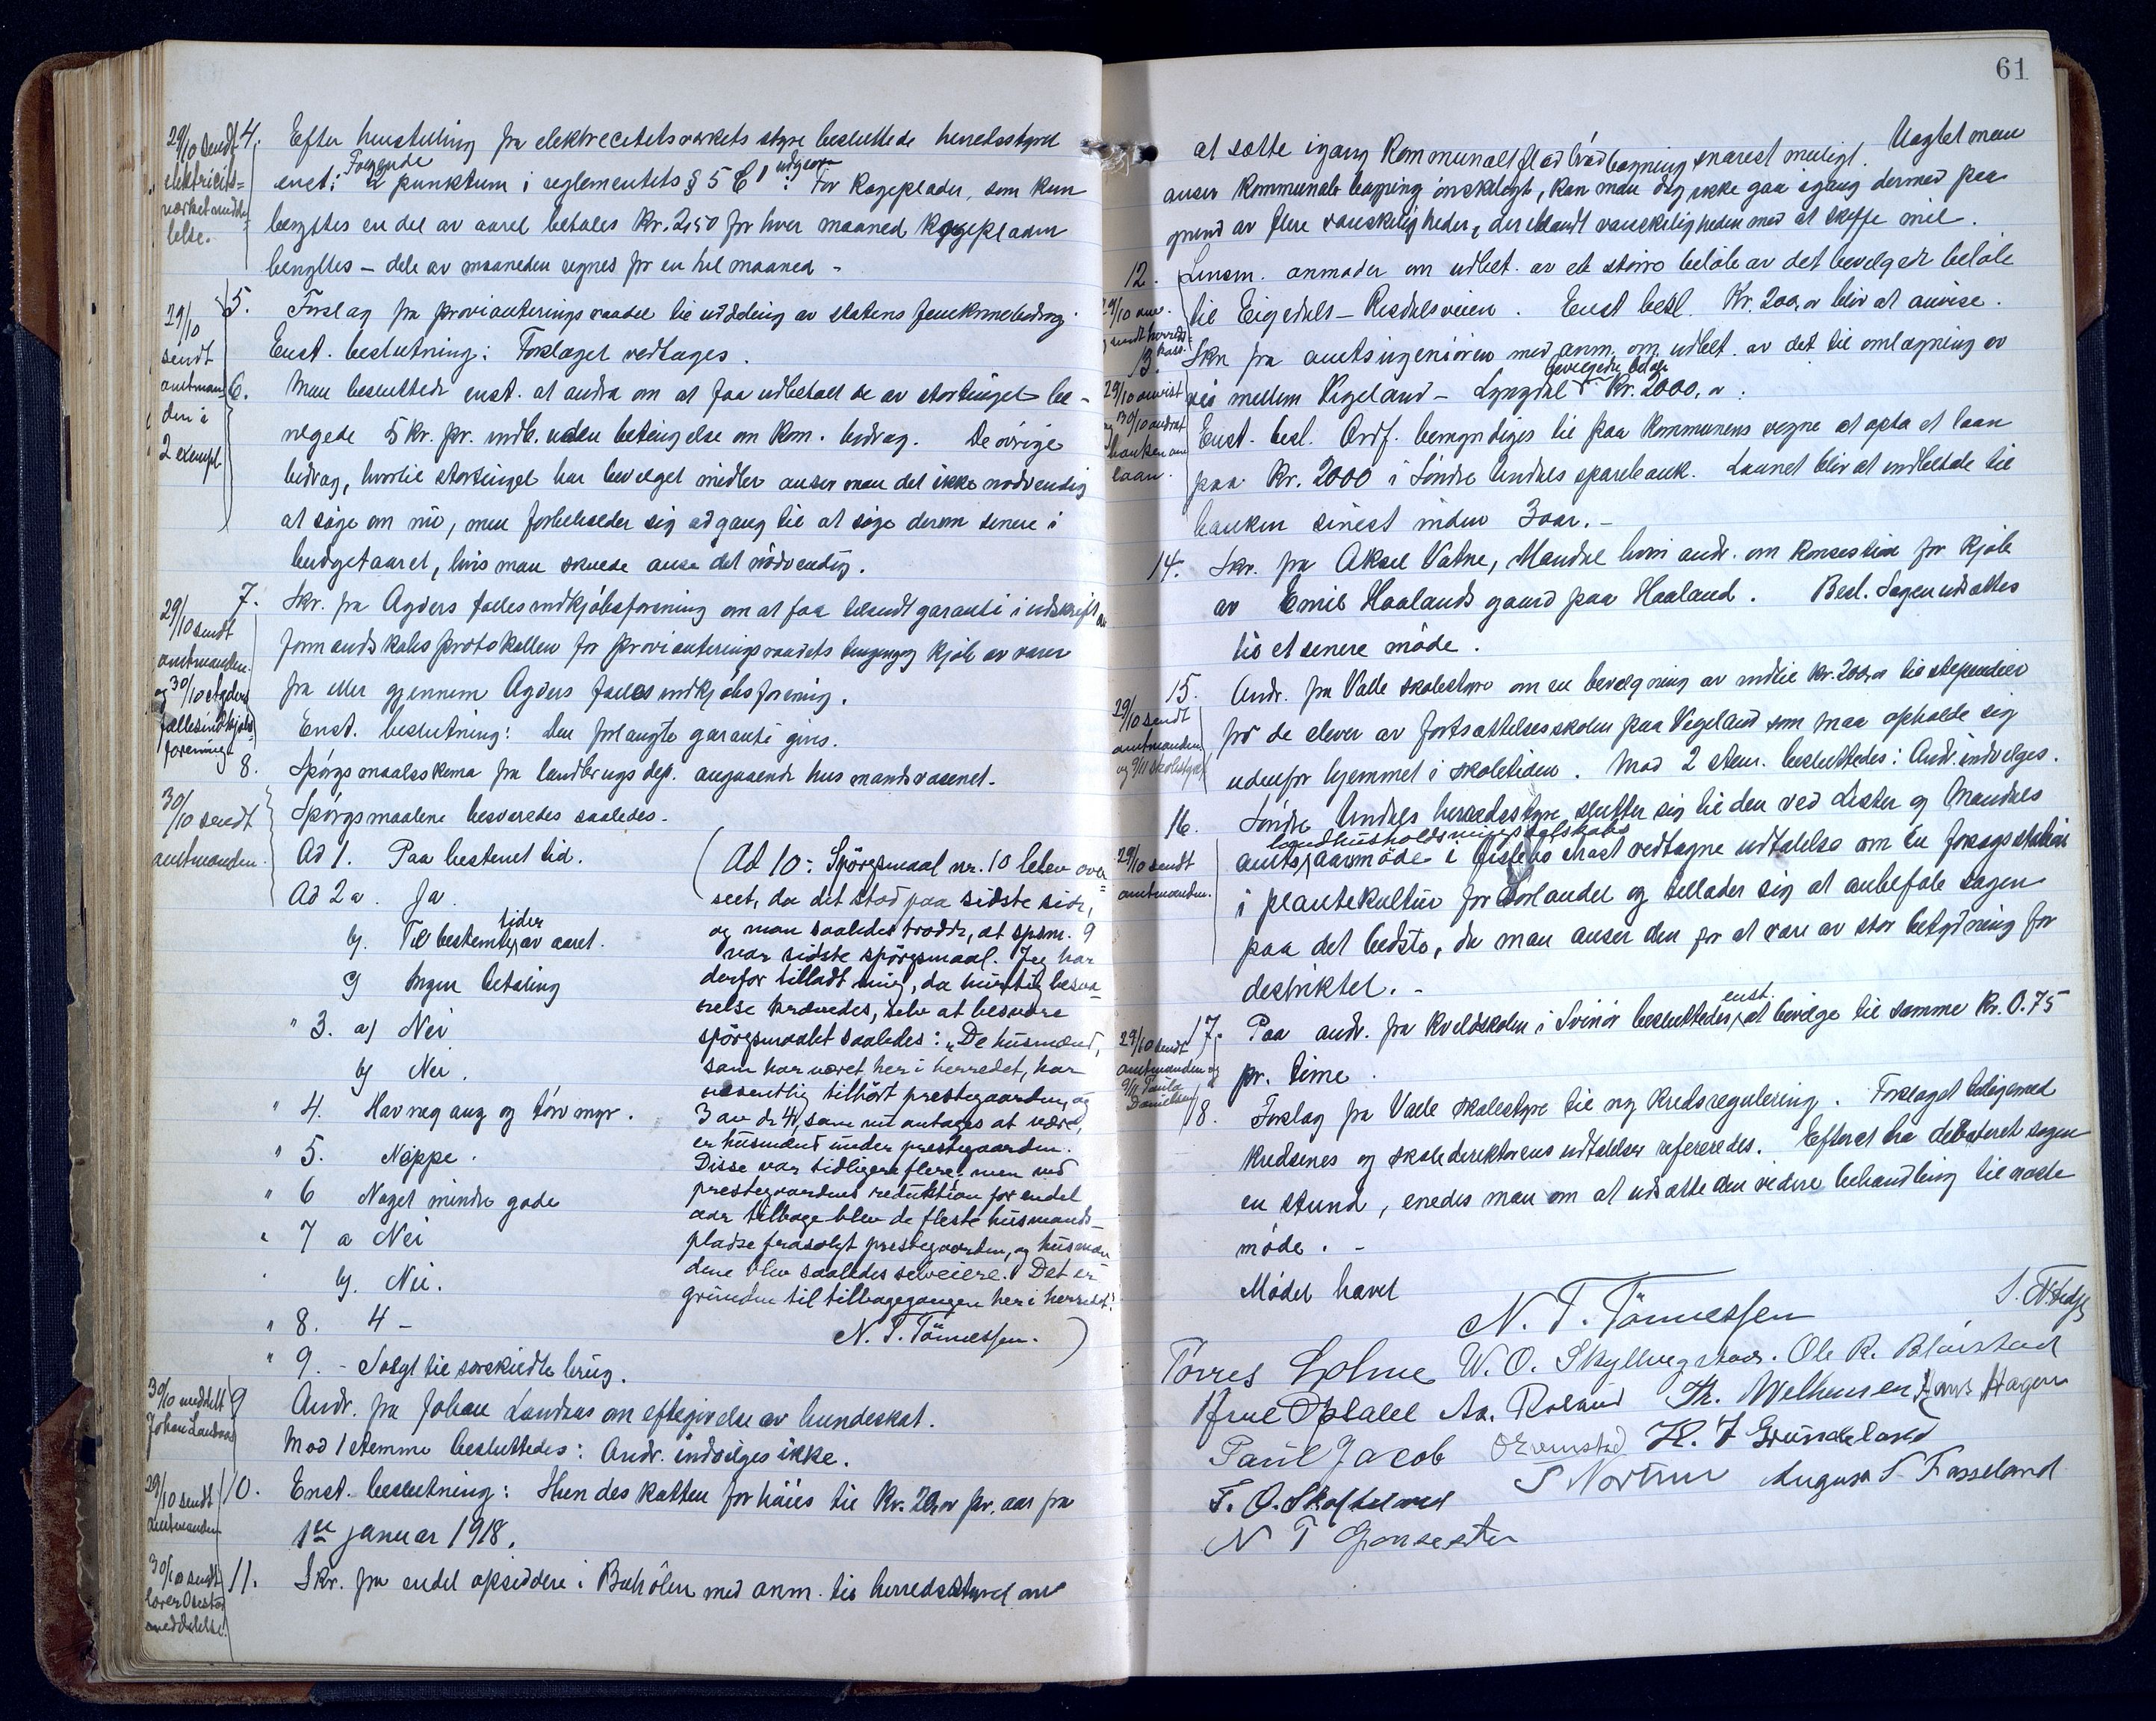 4. Efter henstilling fra elektrecitetsverkets styre besluttede herredsstyret
enst: Følgende 2 punktum i reglementets § 5 C 1 utgaar: For kogeplader, som kun
benyttes en del av aaret betales Kr. 2,50 for hver maaned kogepladen
benyttes – dele av maaneden regnes for en hel maaned –
29/10 sendt
elektricit=
verket medde=
lelse.
5. Forslag fra provianteringsraadet til uddeling av statens femkronebidrag.
Enst. beslutning: Forslaget vedtages.
29/10
sendt
amtman-
den i
2 exempl.
6. Man besluttede enst. at andra om at faa udbetalt de av stortinget be-
vilgede 5 kr. pr. indb. uden betingelse om kom. bidrag. De øvrige
bidrag, hvortil stortinget har bevilget midler anser man det ikke nødvendig
at søge om nu, men forbeholder sig adgang til at søge derom senere i
budgetaaret, hvis man skulde anse det nødvendig.
7. Skr. fra Agders fællesindkjøbsforening om at faa tilsendt garanti i udskrift av
formandskabsprotokollen for provianteringsraadets kjøb av varer
fra eller gjennem Agders fællesindkjøbsforening.
Enst. beslutning: Den forlangte garanti gives.
29/10 sendt
amtmanden
og 30/10 Agders
fællesindkjøbs=
forening
8. Spørgsmaalsskema fra landbrugsdep. angaaende husmandsvæsenet.
Spørgsmaalene besvaredes saaledes.
30/10 sendt
amtmanden.
Ad 1. Paa bestemt tid.
Ad 2 a. Ja.
b). Til bestemte tider av aaret.
c) Ingen betaling
" 3. a) Nei
b) Nei.
" 4. Havnegang og tørvmyr.
" 5. Neppe.
" 6 Noget mindre gode
" 7 a Nei
b). Nei.
" 8. 4 –
" 9. – Solgt til særskildte brug.
(Ad 10: Spørgsmaal nr. 10 blev over=
seet, da det stod paa sidste side,
og man saaledes trodde, at spsm. 9
var sidste spørgsmaal. Jeg har
derfor tilladt mig, da hurtig besva-
relse krævedes, selv at besvare
spørgsmaalet saaledes: "De husmænd,
som har været her i herredet, har
væsentlig tilhørt prestegaarden, og
3 av de 4, som nu antages at være,
er husmænd under prestegaarden.
Disse var tidligere flere; men ved
prestegaardens reduktion for endel
aar tilbage blev de fleste husmands-
pladse frasolgt prestegaarden, og husmæn
dene blev saaledes selveiere. Det er
grunden til tilbagegangen her i herredet."
N. T. Tönnessen.)
9 Andr. fra Johan Landaas om eftegivelse av hundeskat.
Mod 1 stemme besluttedes: Andr. indvilges ikke.
30/10 meddelt
Johan Landaas
10. Enst. beslutning: Hundeskatten forhøies til Kr. 20,00 pr. aar fra
1ste januar 1918.
29/10 sendt
amtmanden
11. Skr. fra endel opsiddere i med anm. til herredsstyret om
30/10 sendt
meddelelse.
61
at sætte igang kommunalt snarest muligt. Uagtet man
anser kommunal bagning ønskeligt, kan man dog ikke gaa igang dermed paa
grund av flere vanskeligheder, deriblandt vanskeligheden med at skaffe mel.
12. Lensm. anmoder om udbet. av et større beløb av det bevilgede beløb
til Eigedals – Risdalsveien. Enst besl. Kr. 200,00 blir at anvise.
29/10 anv.
sendt herreds-
kass.
13. Skr. fra amtsingeniøren med anm. om udbet. av det til omlægning av
vei mellem Vigeland – Lyngdal bevilgede beløb Kr. 2000,00.
Enst. besl. Ordf. bemyndiges til paa kommunens vegne at opta et laan
paa Kr. 2000 i Søndre Undals sparebank. Laanet blir at indbetale til
banken senest inden 3 aar. –
29/10 anvist
og 30/10 andrat
banken om
laan.
14. Skr. fra Aksel Vatne, Mandal hvori andr. om konsession for kjøb
av Emil Haalands gaard paa Haaland. Besl. Sagen udsættes
til et senere møde.
15. Andr. fra Valle skolestyre om en bevilgning av indtil kr. 200,00 til stipendier
for de elever av fortsættelsesskolen paa Vigeland som maa opholde sig
udenfor hjemmet i skoletiden. Mod 2 stem. besluttedes: Andr. indvilges.
29/10 sendt
amtmanden
og 9/11 skolestyr.
16. Søndre Undals herredsstyre slutter sig til den ved Lister og Mandals
amts landhusholdningsselskabs aarsmøde i vedtagne udtalelse om en forsøgsstation
i plantekultur for Sørlandet og tillader sig at anbefale sagen
paa det bedste, da man anser den for at være av stor betydning for
destriktet. –
29/10 sendt
amtmanden.
17. Paa andr. fra kveldskolen i Svinør besluttedes enst. at bevilge til samme Kr. 0.75
pr. time.
29/10 sendt
amtmanden og
9/11 Paula
Danielsen
18. Forslag fra Valle skolestyre til ny kredsregulering. Forslaget tilligemed
kredsenes og skoledirektørens udtalelser refereredes. Efter at ha debateret sagen
en stund, enedes man om at udsætte den videre behandling til næste
møde. –
Mødet hævet
N. T. Tönnessen
Torres Holme W. O. Skyllingstad. Ole R. Blørstad
Aa. Roland Th. Wilhemsen Hans Hagen
Paul Jacob Ormestad H. J. Grundeland
F. O. Skofteland S Nortun August S. Fasseland
N T Gonsester